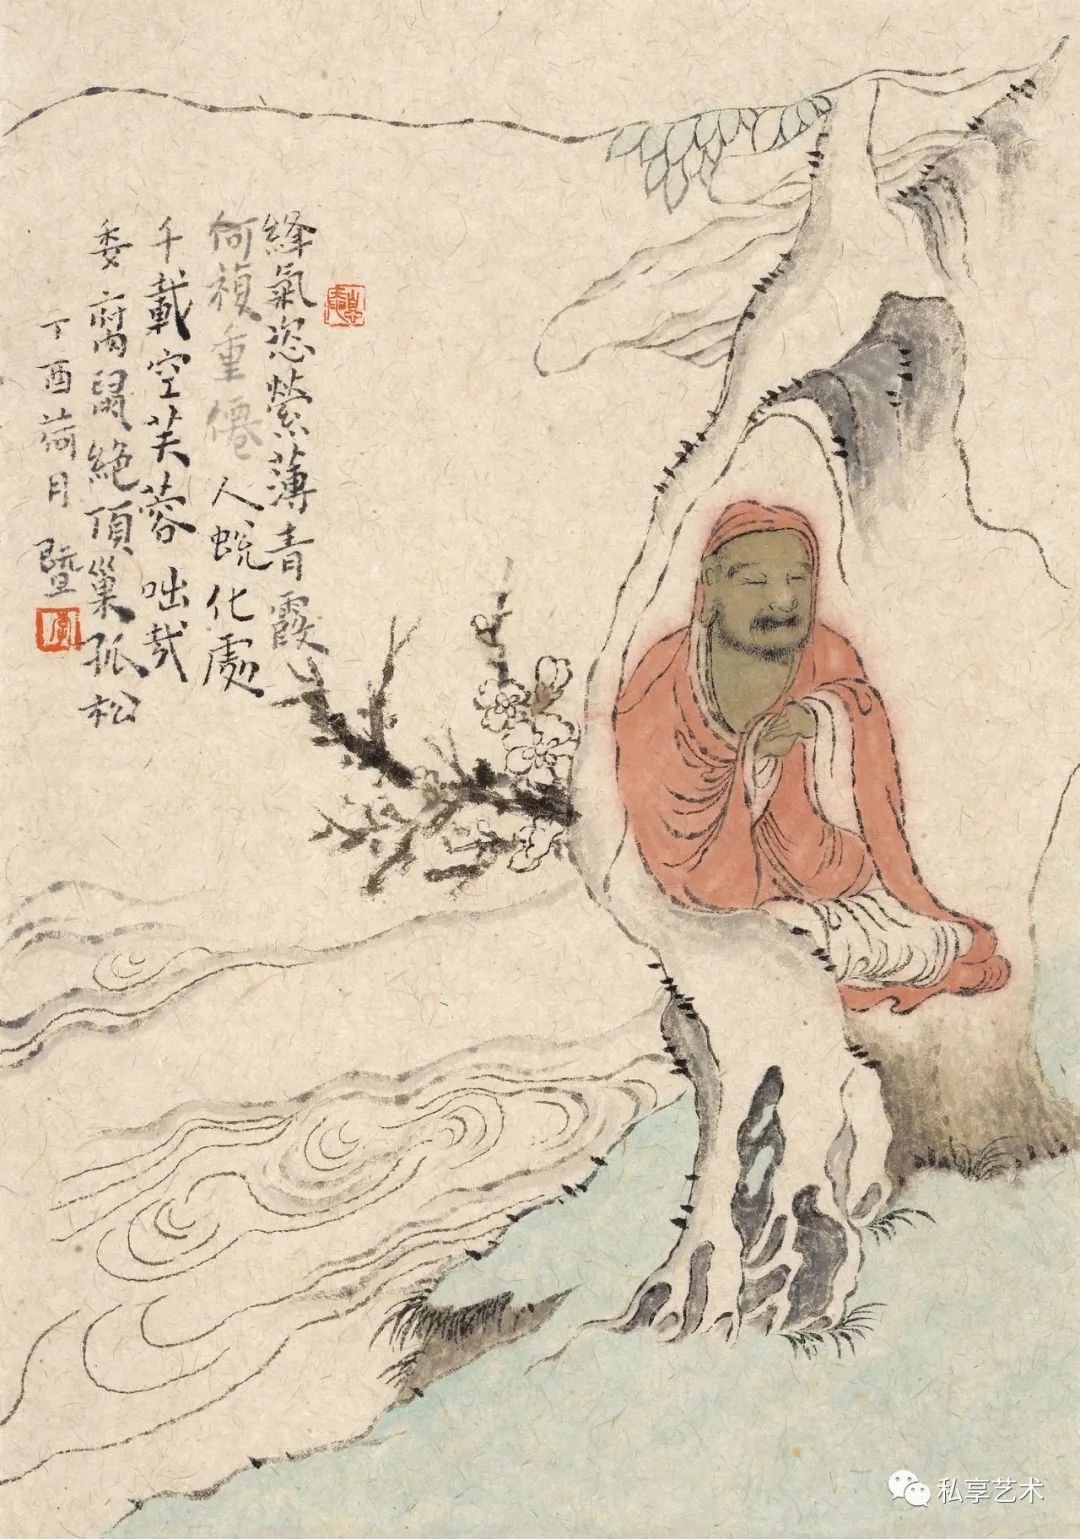 絳氣恣縈薄青霞
何禎重僊人蛻化處
千載空芙蓉咄哉
委腐鼠絕頂巢孤松
丁酉荷月暨
私享艺术